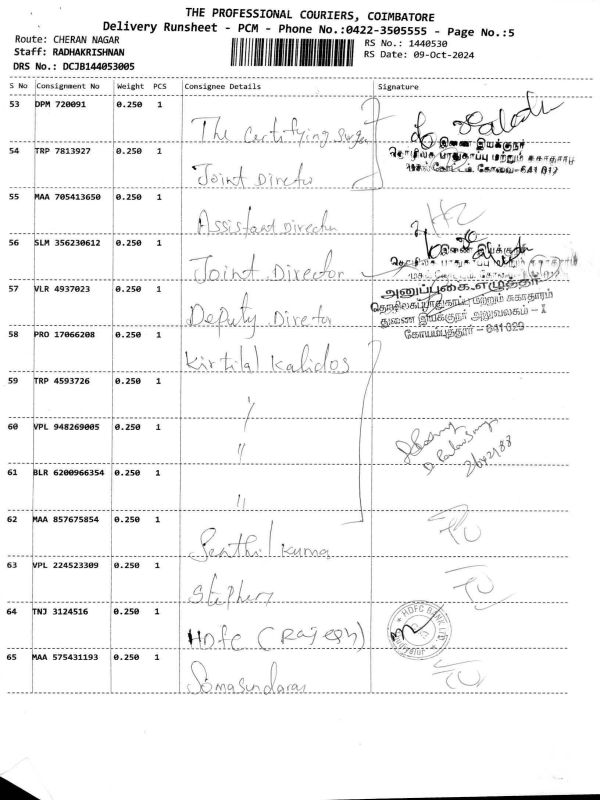 THE PROFESSIONAL COURIERS, COIMBATORE
Delivery Runsheet - PCM - Phone No.:0422-3505555 - Page No.:5
Route: CHERAN NAGAR
RS No.: 1440530
Staff: RADHAKRISHNAN
RS Date: 09-Oct-2024
DRS No.: DCJB144053005
S No Consignment No Weight PCS Consignee Details Signature
53 DPM 720091 0.250 1 The Certifying Surgeo
இணை இயக்குநர்
54 TRP 7813927 0.250 1 Joint Director
55 MAA 705413650 0.250 1 Assistant Director
56 SLM 356230612 0.250 1 Joint Director
இணை இயக்குநர்
57 VLR 4937023 0.250 1 Deputy Director
அனுப்புகை எழுத்தர்
தொழிலகப்பாதுகாப்பு மற்றும் சுகாதாரம்
துணை இயக்குநர் அலுவலகம் - I
கோயம்புத்தூர் - 641029
58 PRO 17066208 0.250 1 Kirtilal Kalidos
59 TRP 4593726 0.250 1 "
60 VPL 948269005 0.250 1 "
61 BLR 6200966354 0.250 1 "
62 MAA 857675854 0.250 1 Senthil Kumar
63 VPL 224523309 0.250 1 Stephen
64 TNJ 3124516 0.250 1 HDFC (Rajesh)
HDFC BANK LTD.
65 MAA 575431193 0.250 1 Somasundaram